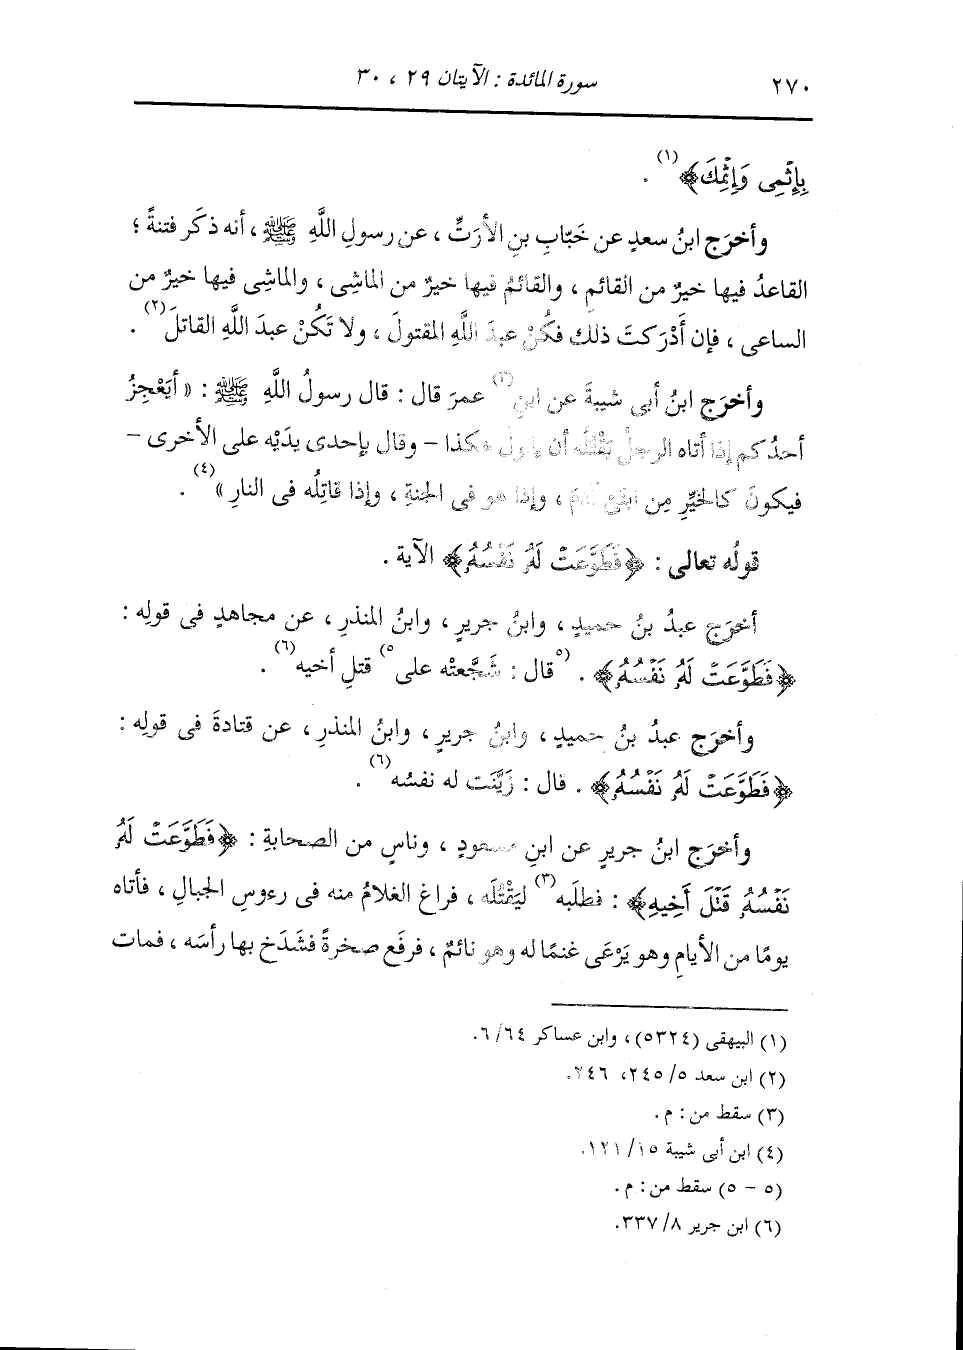 ٢٧٠ سورة المائدة : الآيتان ٢٩ ، ٣٠
بِإِثْمِى وَإِثْمِكَ﴾(١) .
وأخرَج ابنُ سعدٍ عن خَبّابِ بنِ الأرَتِّ ، عن رسولِ اللَّهِ ﷺ ، أنه ذكَر فتنةً ؛
القاعدُ فيها خيرٌ من القائمِ ، والقائمُ فيها خيرٌ من الماشِى ، والماشِى فيها خيرٌ من
الساعى ، فإن أَدْرَكتَ ذلك فكُنْ عبدَ اللَّهِ المقتولَ ، ولا تَكُنْ عبدَ اللَّهِ القاتلَ(٢) .
وأخرَج ابنُ أبى شيبةَ عن ابنِ(٣) عمرَ قال : قال رسولُ اللَّهِ ﷺ : « أيَعْجِزُ
أحدُكم إذا أتاه الرجلُ يَقْتُلُه أن يقولَ هكذا - وقال بإحدى يدَيْه على الأخرى -
فيكونَ كالخيِّرِ مِن ابنَىْ آدمَ ، وإذا هو فى الجنةِ ، وإذا قاتِلُه فى النارِ »(٤) .
قولُه تعالى : ﴿فَطَوَّعَتْ لَهُ نَفْسُهُ﴾ الآية .
أخرَج عبدُ بنُ حميدٍ ، وابنُ جريرٍ ، وابنُ المنذرِ ، عن مجاهدٍ فى قولِه :
﴿فَطَوَّعَتْ لَهُ نَفْسُهُ﴾ . (٥قال : شَجَّعتْه على٥) قتلِ أخيه(٦) .
وأخرَج عبدُ بنُ حميدٍ ، وابنُ جريرٍ ، وابنُ المنذرِ ، عن قتادةَ فى قولِه :
﴿فَطَوَّعَتْ لَهُ نَفْسُهُ﴾ . قال : زَيَّنَت له نفسُه(٦) .
وأخرَج ابنُ جريرٍ عن ابنِ مسعودٍ ، وناسٍ من الصحابةِ : ﴿فَطَوَّعَتْ لَهُ
نَفْسُهُ قَتْلَ أَخِيهِ﴾ : فطلَبه(٣) ليَقْتُلَه ، فراغ الغلامُ منه فى رءوسِ الجبالِ ، فأتاه
يومًا من الأيامِ وهو يَرْعَى غنمًا له وهو نائمٌ ، فرفَع صخرةً فشَدَخ بها رأسَه ، فمات
(١) البيهقى (٥٣٢٤) ، وابن عساكر ٦/٦٤.
(٢) ابن سعد ٢٤٥/٥، ٢٤٦.
(٣) سقط من : م .
(٤) ابن أبى شيبة ١٢١/١٥.
(٥ - ٥) سقط من : م .
(٦) ابن جرير ٣٣٧/٨.